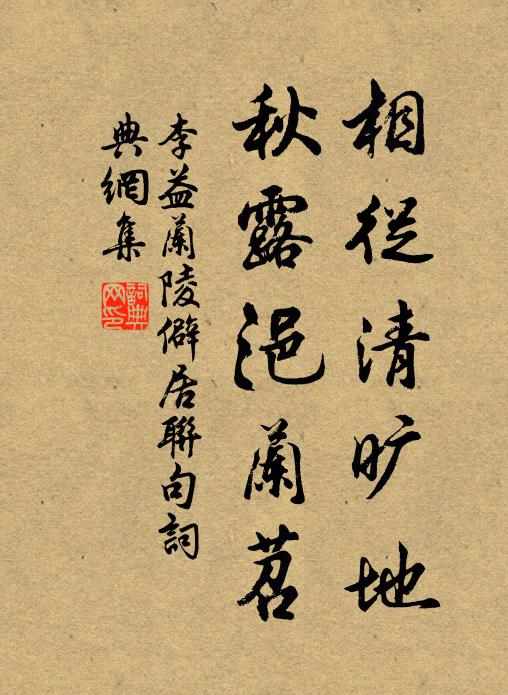 相從清旷地
秋露浥蘭苕
李益蘭陵僻居聯句詞
典網集
詞典網印